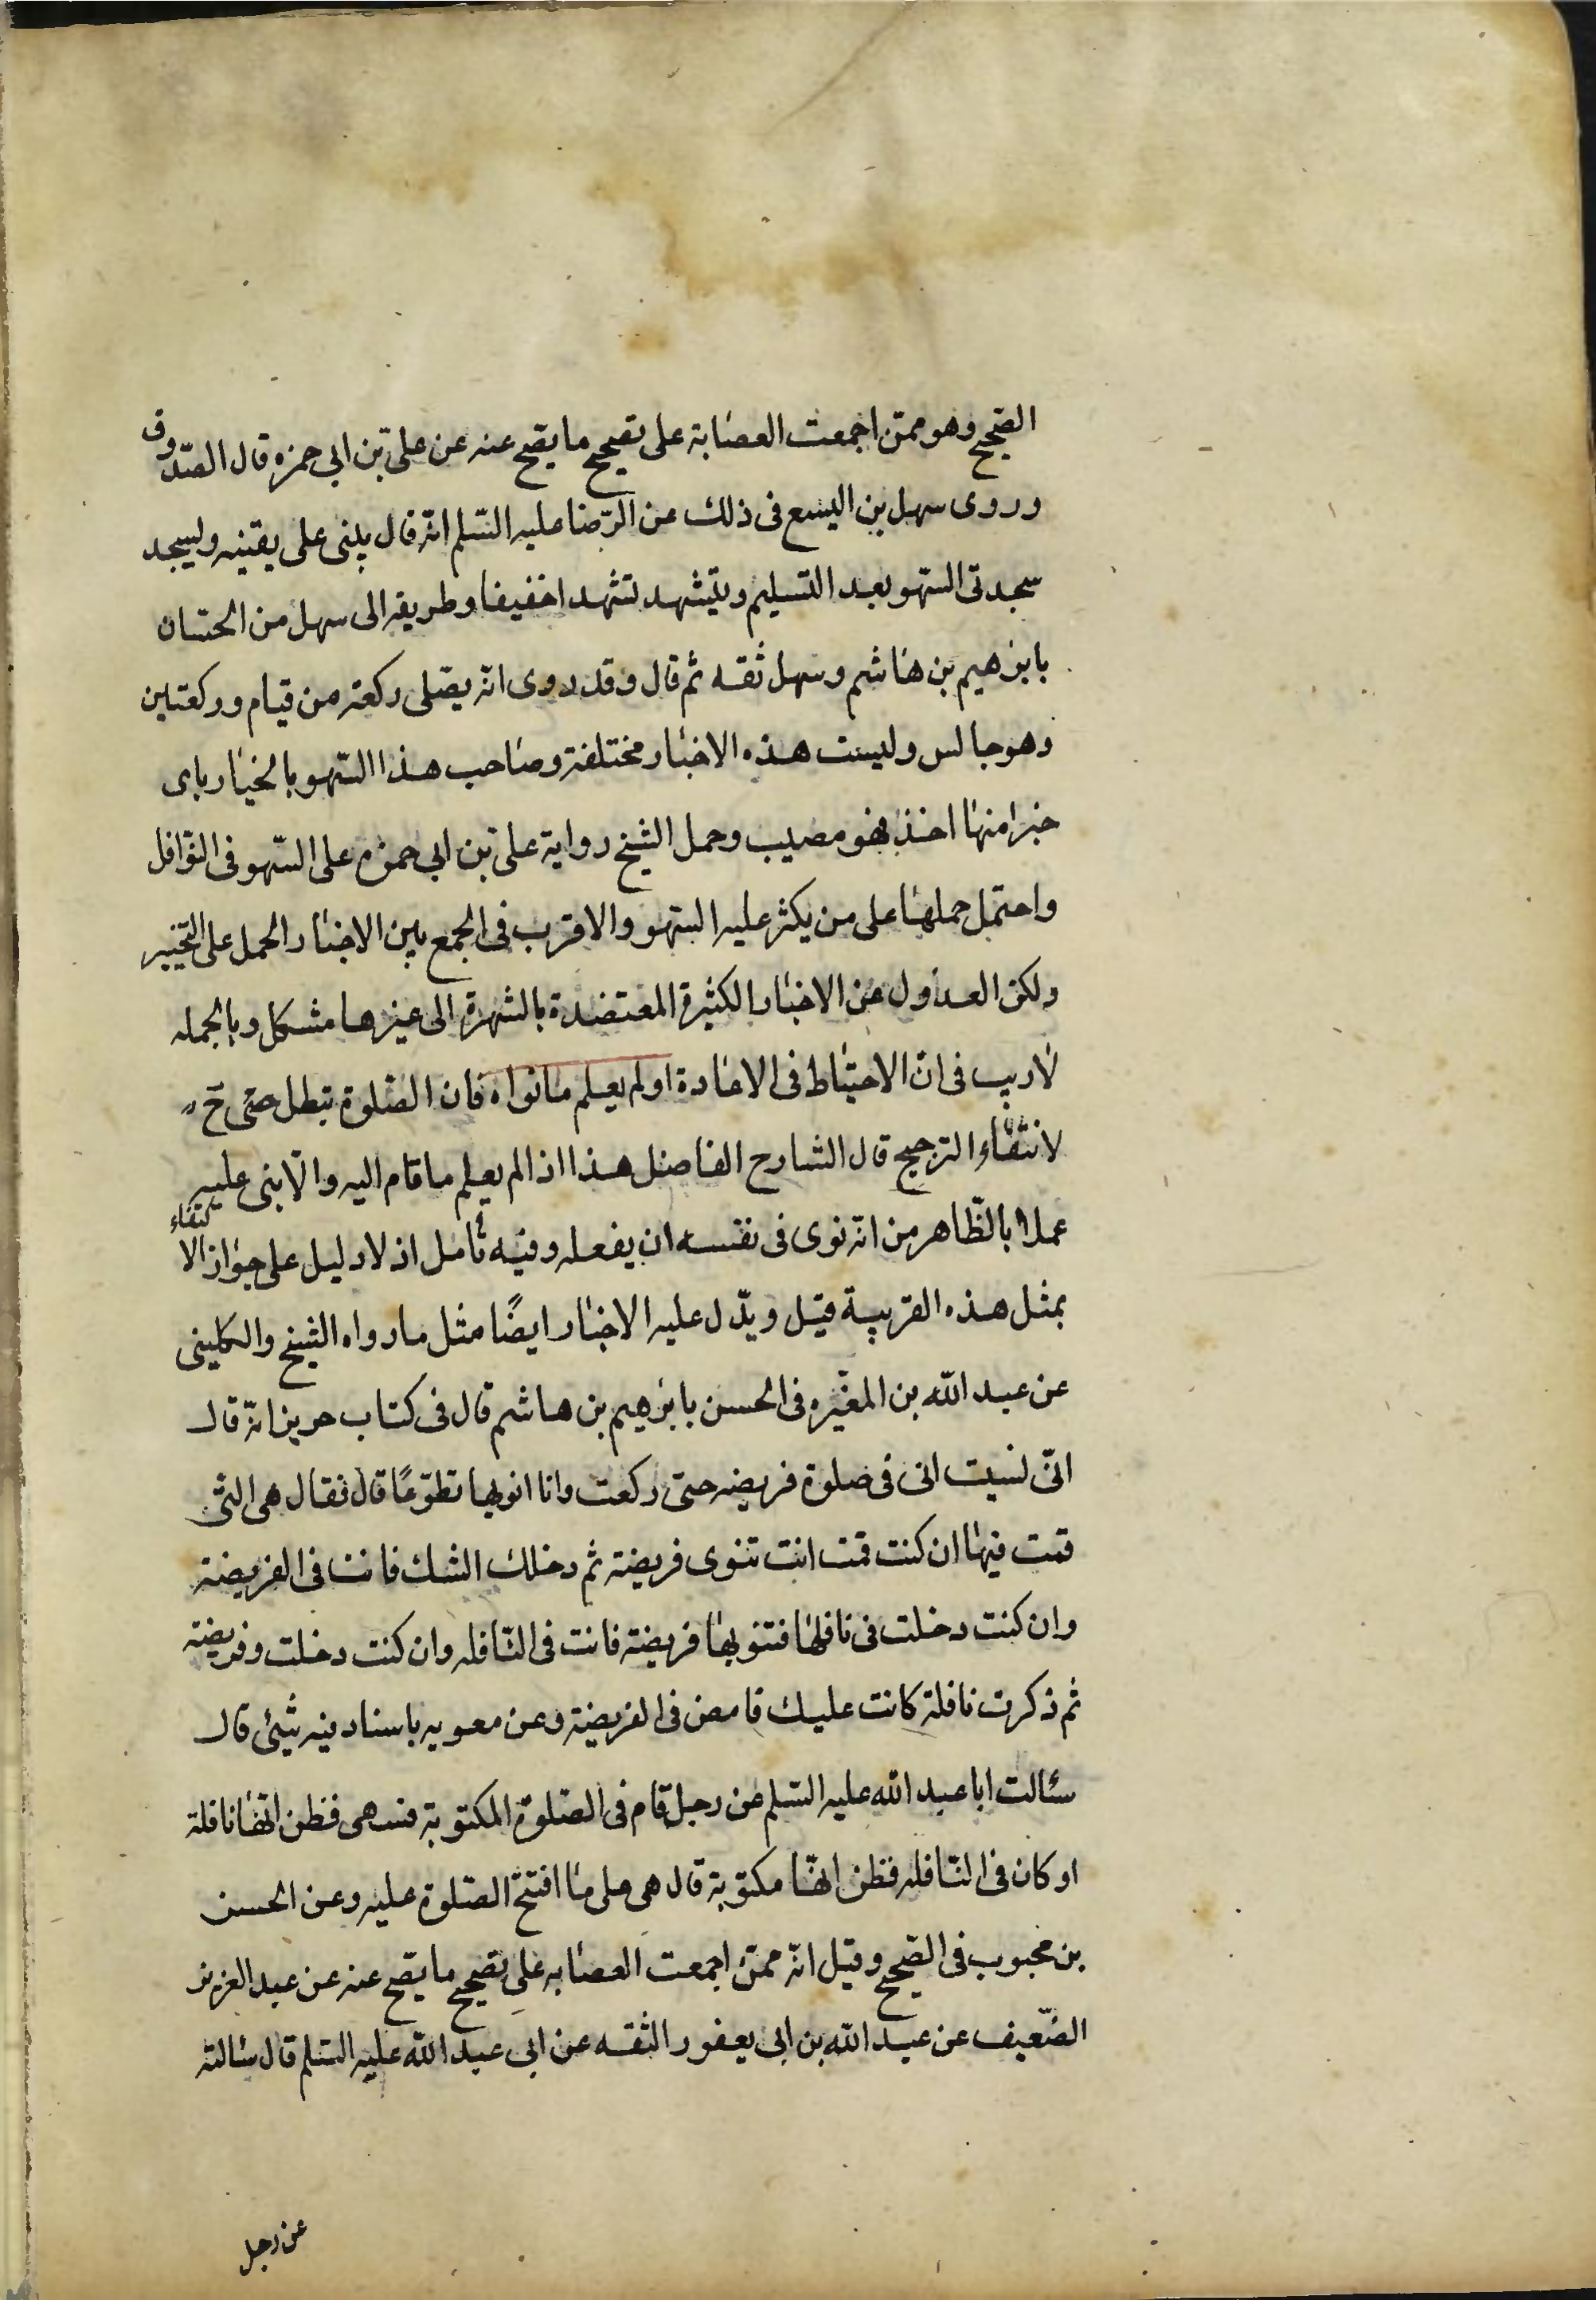 الصحیح وهو ممّن اجمعت العصابة على تصحیح ما یصح عنه عن علیّ بن ابی حمزه قال الصّدوق
وروى سهل بن الیسع فی ذلك عن الرّضا علیه السّلم انّه قال یبنی على یقینه ولیسجد
سجدتی السّهو بعد التسلیم ویتشهد تشهدا خفیفا وطریقه الى سهل من الحسان
بابرهیم بن هاشم وسهل ثقه ثم قال وقد روى انّه یصلّی ركعة من قیام وركعتین
وهو جالس ولیست هذه الاخبار مختلفة وصاحب هذا السّهو بالخیار بای
خبرا منها اخذ فهو مصیب وحمل الشیخ روایة علیّ بن ابی حمزه على السّهو فی النّوافل
واحتمل حملها على من یكثر علیه السّهو والاقرب فی الجمع بین الاخبار الحمل على التّخییر
ولكن العدول عن الاخبار الكثیرة المعتضدة بالشهرة الى غیرها مشكل وبالجمله
لاریب فی انّ الاحتیاط فی الاعادة او لم یعلم ما نواه فان الصّلوة تبطل حتى ح
لانتفاء الترجیح قال الشارح الفاضل هذا اذا لم یعلم ما قام الیه والّا بنى علیه
عملا بالظّاهر من انّه نوى فی نفسه ان یفعله وفیه تأمل اذ لا دلیل على جواز الاكتفاء
بمثل هذه القرینة قیل ویدّل علیه الاخبار ایضًا مثل ما رواه الشیخ والكلینی
عن عبد اللّه بن المغیره فی الحسن بابرهیم بن هاشم قال فی كتاب حریز انّه قال
انّی نسیت انی فی صلوة فریضه حتى ركعت وانا انویها تطوّعًا قال فقال هی التی
قمت فیها ان كنت قمت انت تنوی فریضة ثم دخلك الشك فانت فی الفریضة
وان كنت دخلت فی نافلة فتنویها فریضة فانت فی النّافله وان كنت دخلت فی فریضة
ثم ذكرت نافلة كانت علیك فامض فی الفریضة وعن معویه باسناد فیه شیئ قال
سئالت ابا عبد اللّه علیه السّلم عن رجل قام فی الصّلوة المكتوبة فسهى فظن انّها نافلة
او كان فی النّافله فظن انّها مكتوبة قال هی على ما افتتح الصّلوة علیه وعن الحسن
بن محبوب فی الصّحیح وقیل انّه ممّن اجمعت العصابه على تصحیح ما یصح عنه عن عبد العزیز
الضّعیف عن عبد اللّه بن ابی یعفور الثقه عن ابی عبد اللّه علیه السّلم قال سئالته
عن رجل